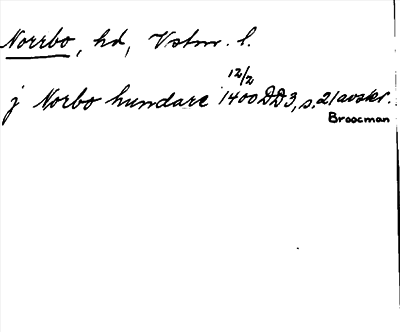 Norrbo, hd, Vstm. l.
12/2
j Norbo hundare 1400 DD3, s. 21 avskr.
Broocman